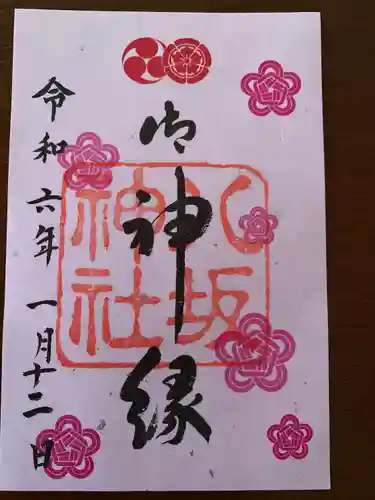 御神縁
八坂神社
令和六年一月十二日